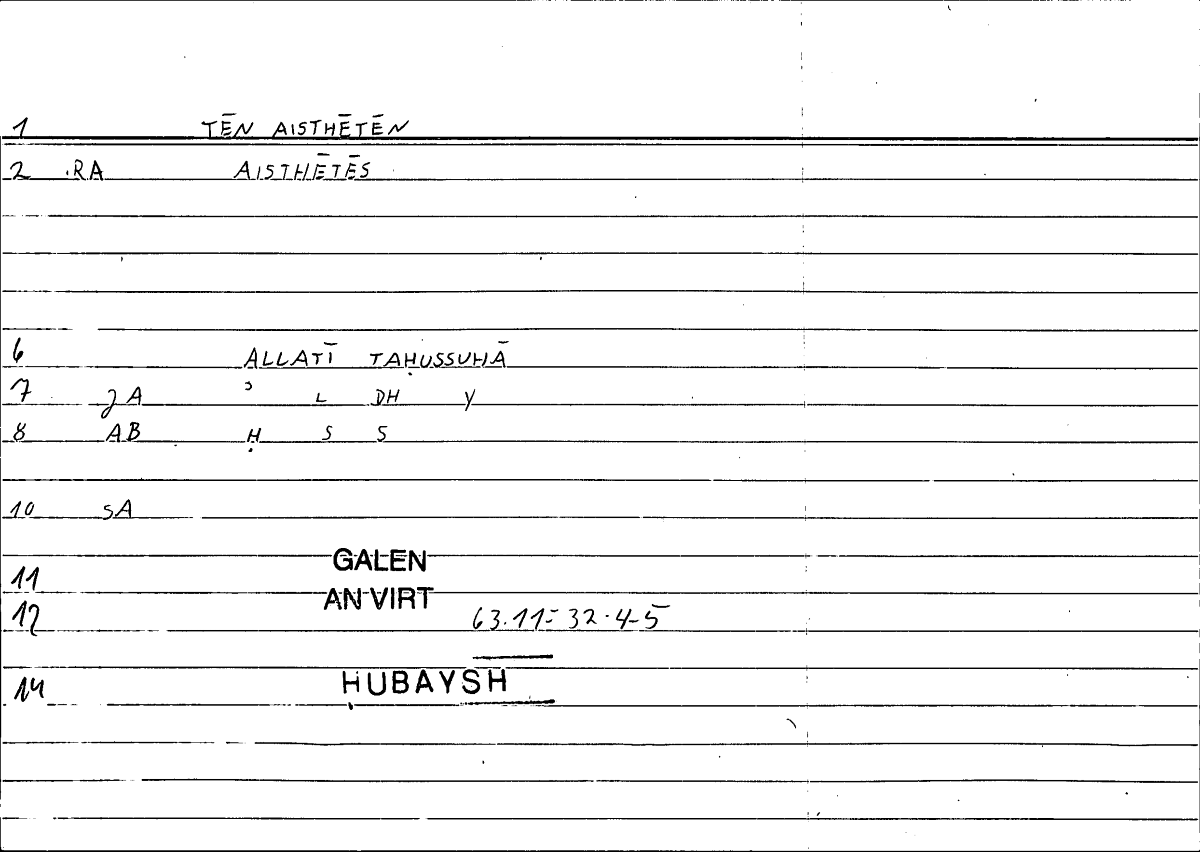 1 TĒN AISTHĒTĒN
2 .RA AISTHĒTĒS
6 ALLATĪ TAḤUSSUHĀ
7 JA ʾ L DH Y
8 AB Ḥ S S
10 SA
11 GALEN
12 AN VIRT 63.11 = 32.4-5
14 ḤUBAYSH